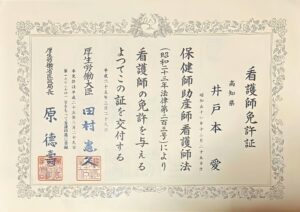 看護師免許証
高知県
井戸本 愛
保健師助産師看護師法
（昭和二十三年法律第二百三号）により
看護師の免許を与える
よってこの証を交付する
厚生労働大臣 田村憲久
厚生労働省医政局長 原 德壽